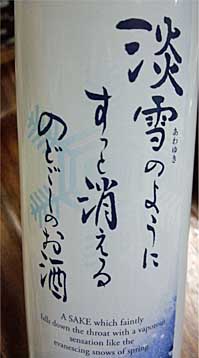 淡雪のように
あわゆき
すっと消える
のどごしのお酒
A SAKE which faintly
falls down the throat with a vaporous
sensation like the
evanescing snows of spring.